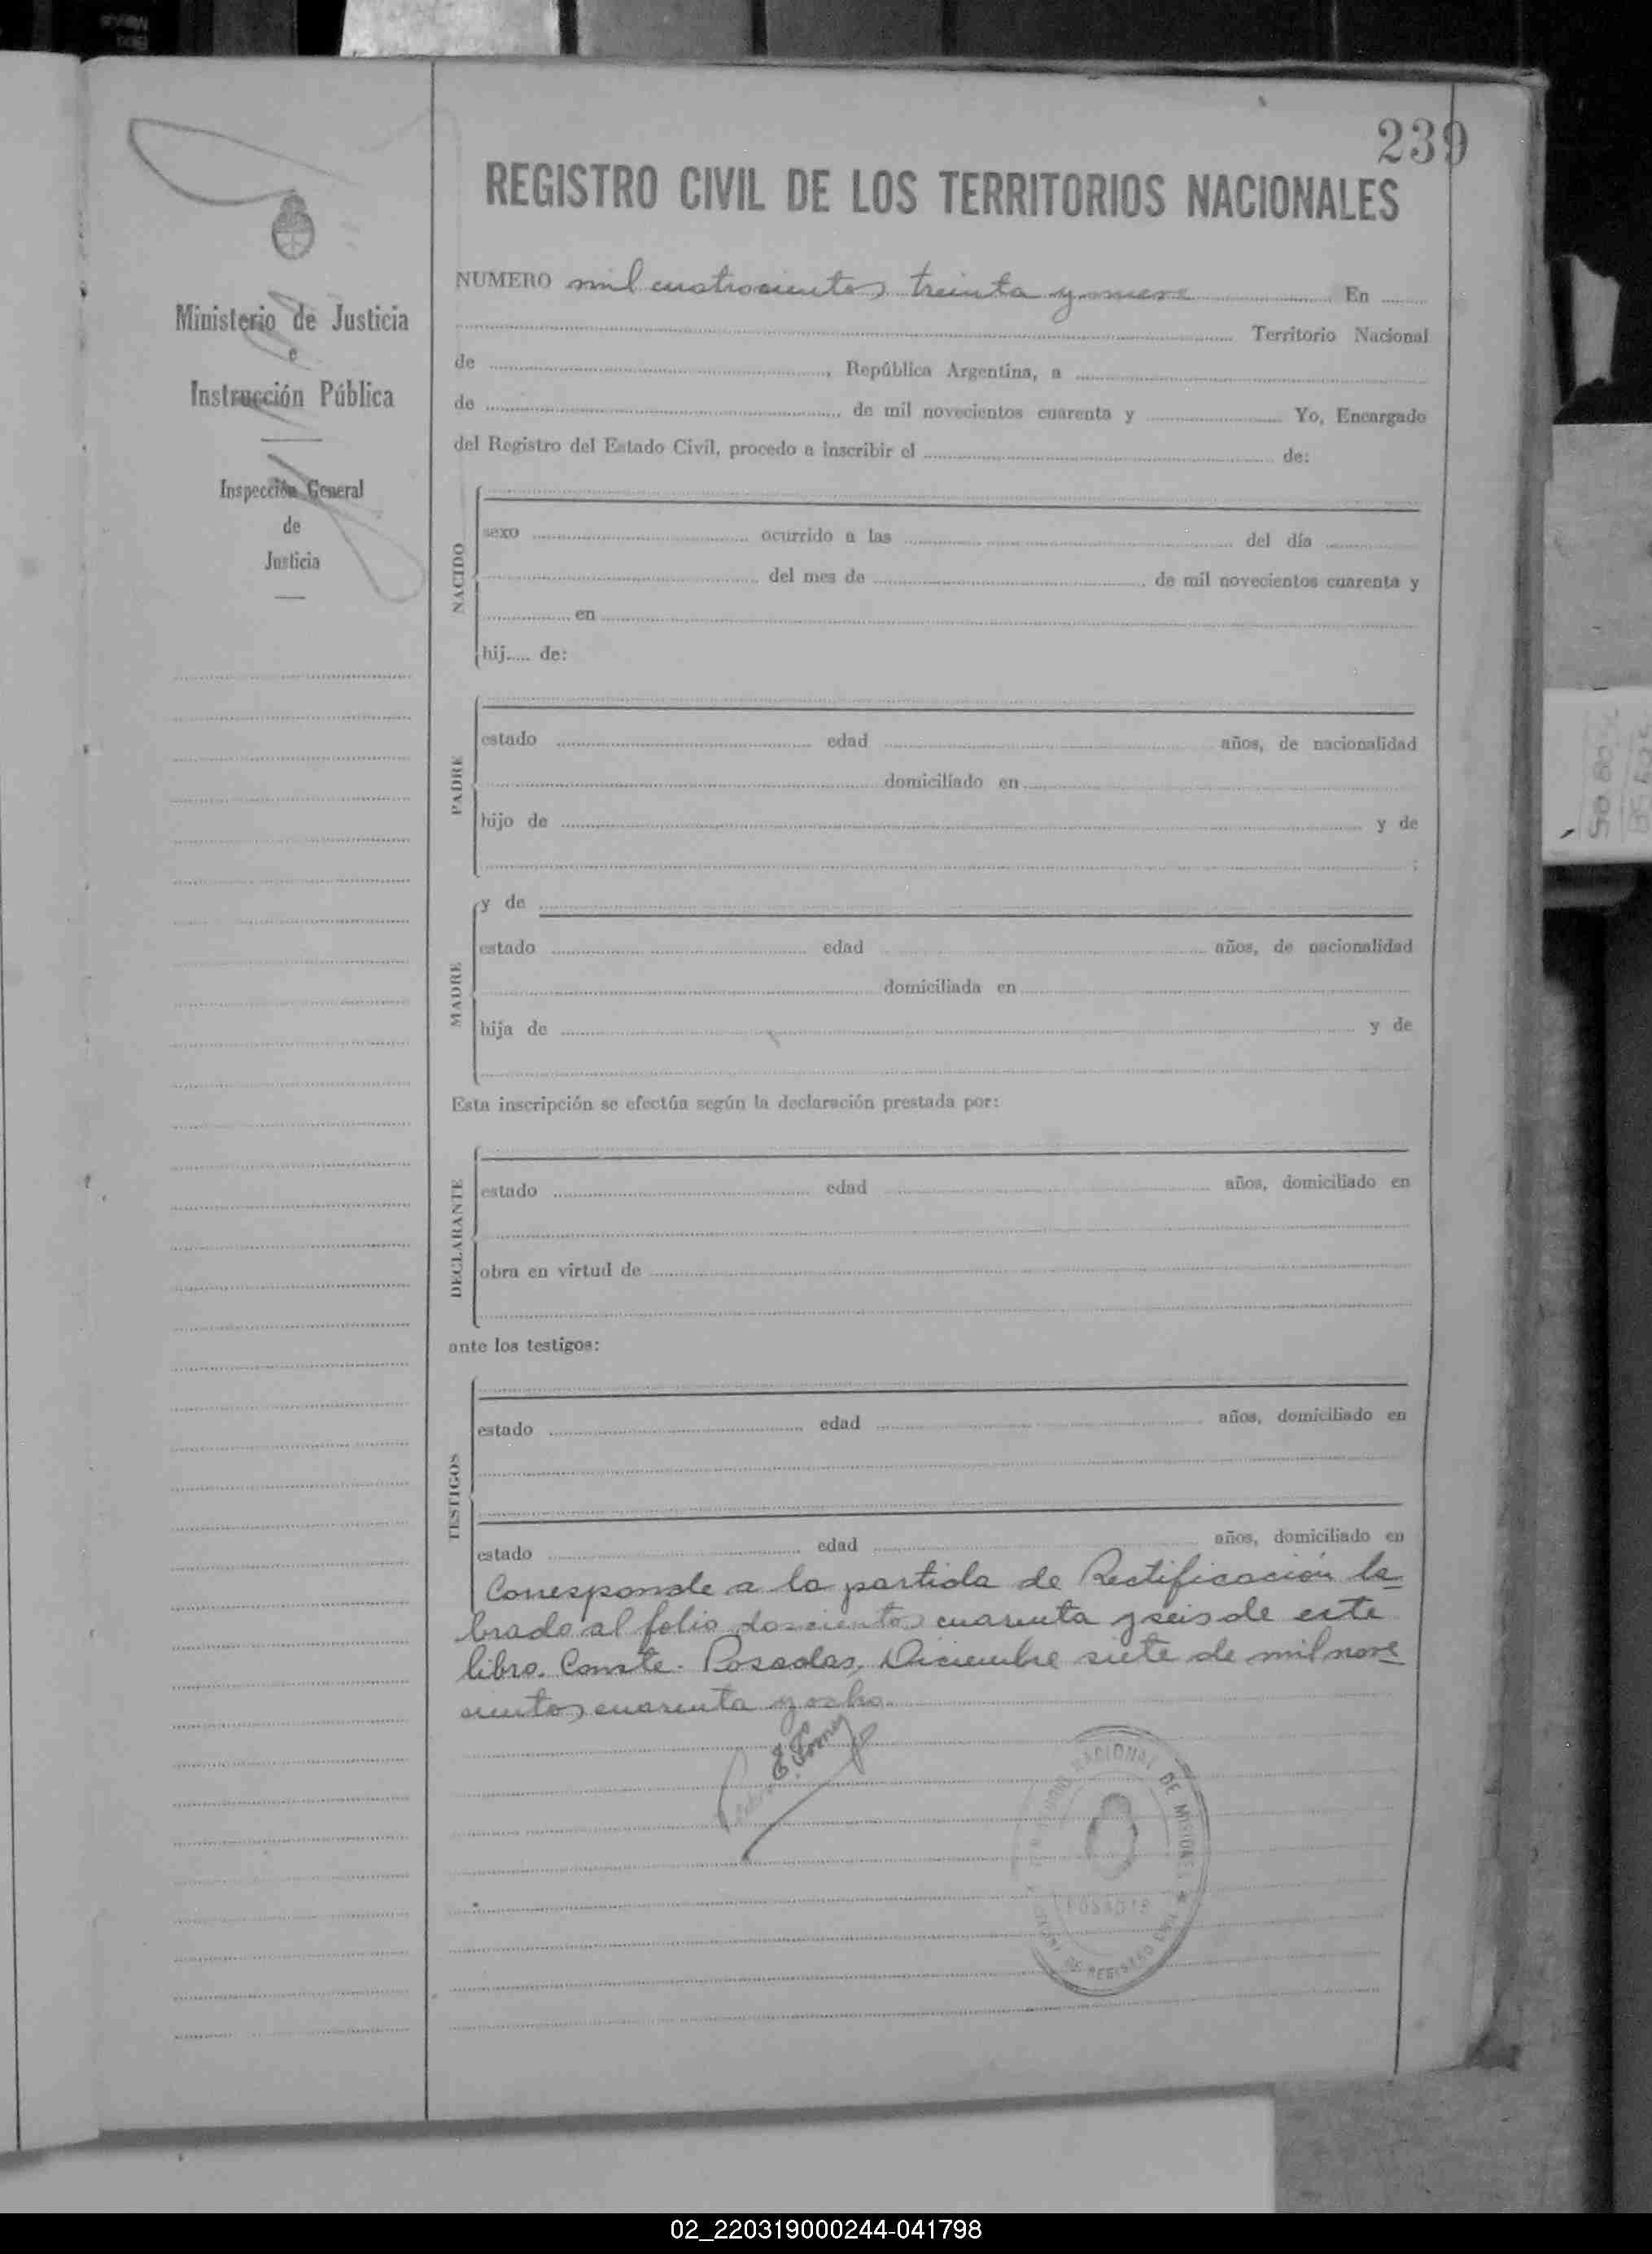 239
REGISTRO CIVIL DE LOS TERRITORIOS NACIONALES
Ministerio de Justicia
e
Instrucción Pública
Inspección General
de
Justicia
NUMERO mil cuatrocientos treinta y nueve En
Territorio Nacional
de , República Argentina, a
de de mil novecientos cuarenta y Yo, Encargado
del Registro del Estado Civil, procedo a inscribir el de:
NACIDO
sexo ocurrido a las del día
del mes de de mil novecientos cuarenta y
en
hij..... de:
PADRE
estado edad años, de nacionalidad
domiciliado en
hijo de y de
;
MADRE
y de
estado edad años, de nacionalidad
domiciliada en
hija de y de
Esta inscripción se efectúa según la declaración prestada por:
DECLARANTE
estado edad años, domiciliado en
obra en virtud de
ante los testigos:
TESTIGOS
estado edad años, domiciliado en
estado edad años, domiciliado en
Corresponde a la partida de Rectificación la-
brada al folio doscientos cuarenta y seis de este
libro. Conste. Posadas, Diciembre siete de mil nove
cientos cuarenta y ocho.
NACIONAL DE MISIONES
POSADAS
DE REGISTRO CIVIL
02_220319000244-041798